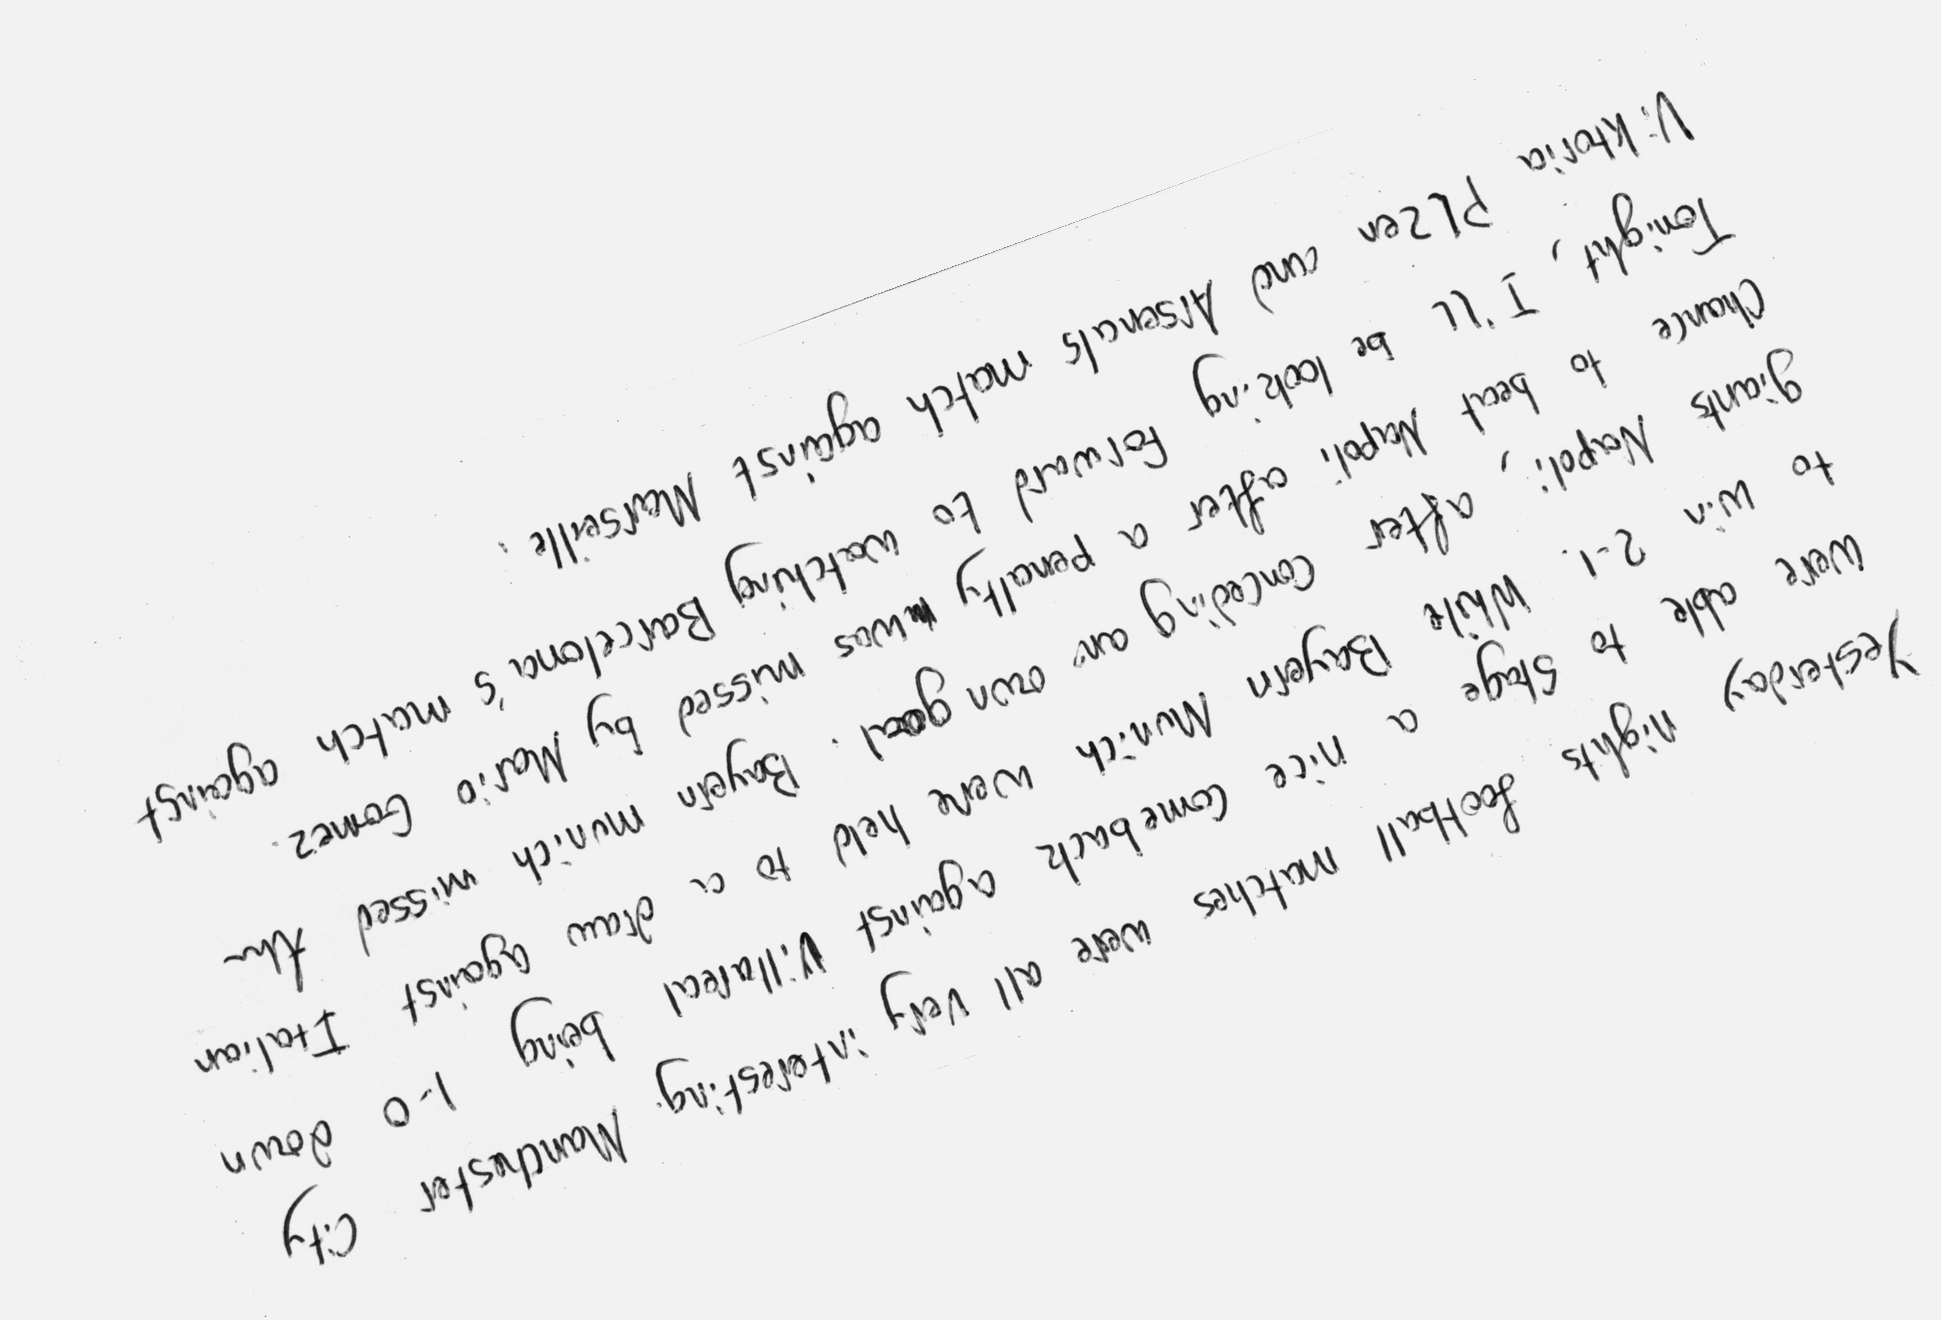 Yesterday nights football matches were all very interesting. Manchester City
were able to stage a nice comeback against Villareal being 1-0 down
to win 2-1. While Bayern Munich were held to a draw against Italian
giants Napoli, after conceding an own goal. Bayern munich missed the
Chance to beat Napoli after a penalty was missed by Mario Gomez.
Tonight, I'll be looking forward to watching Barcelona's match against
Viktoria Plzen and Arsenals match against Marseille.